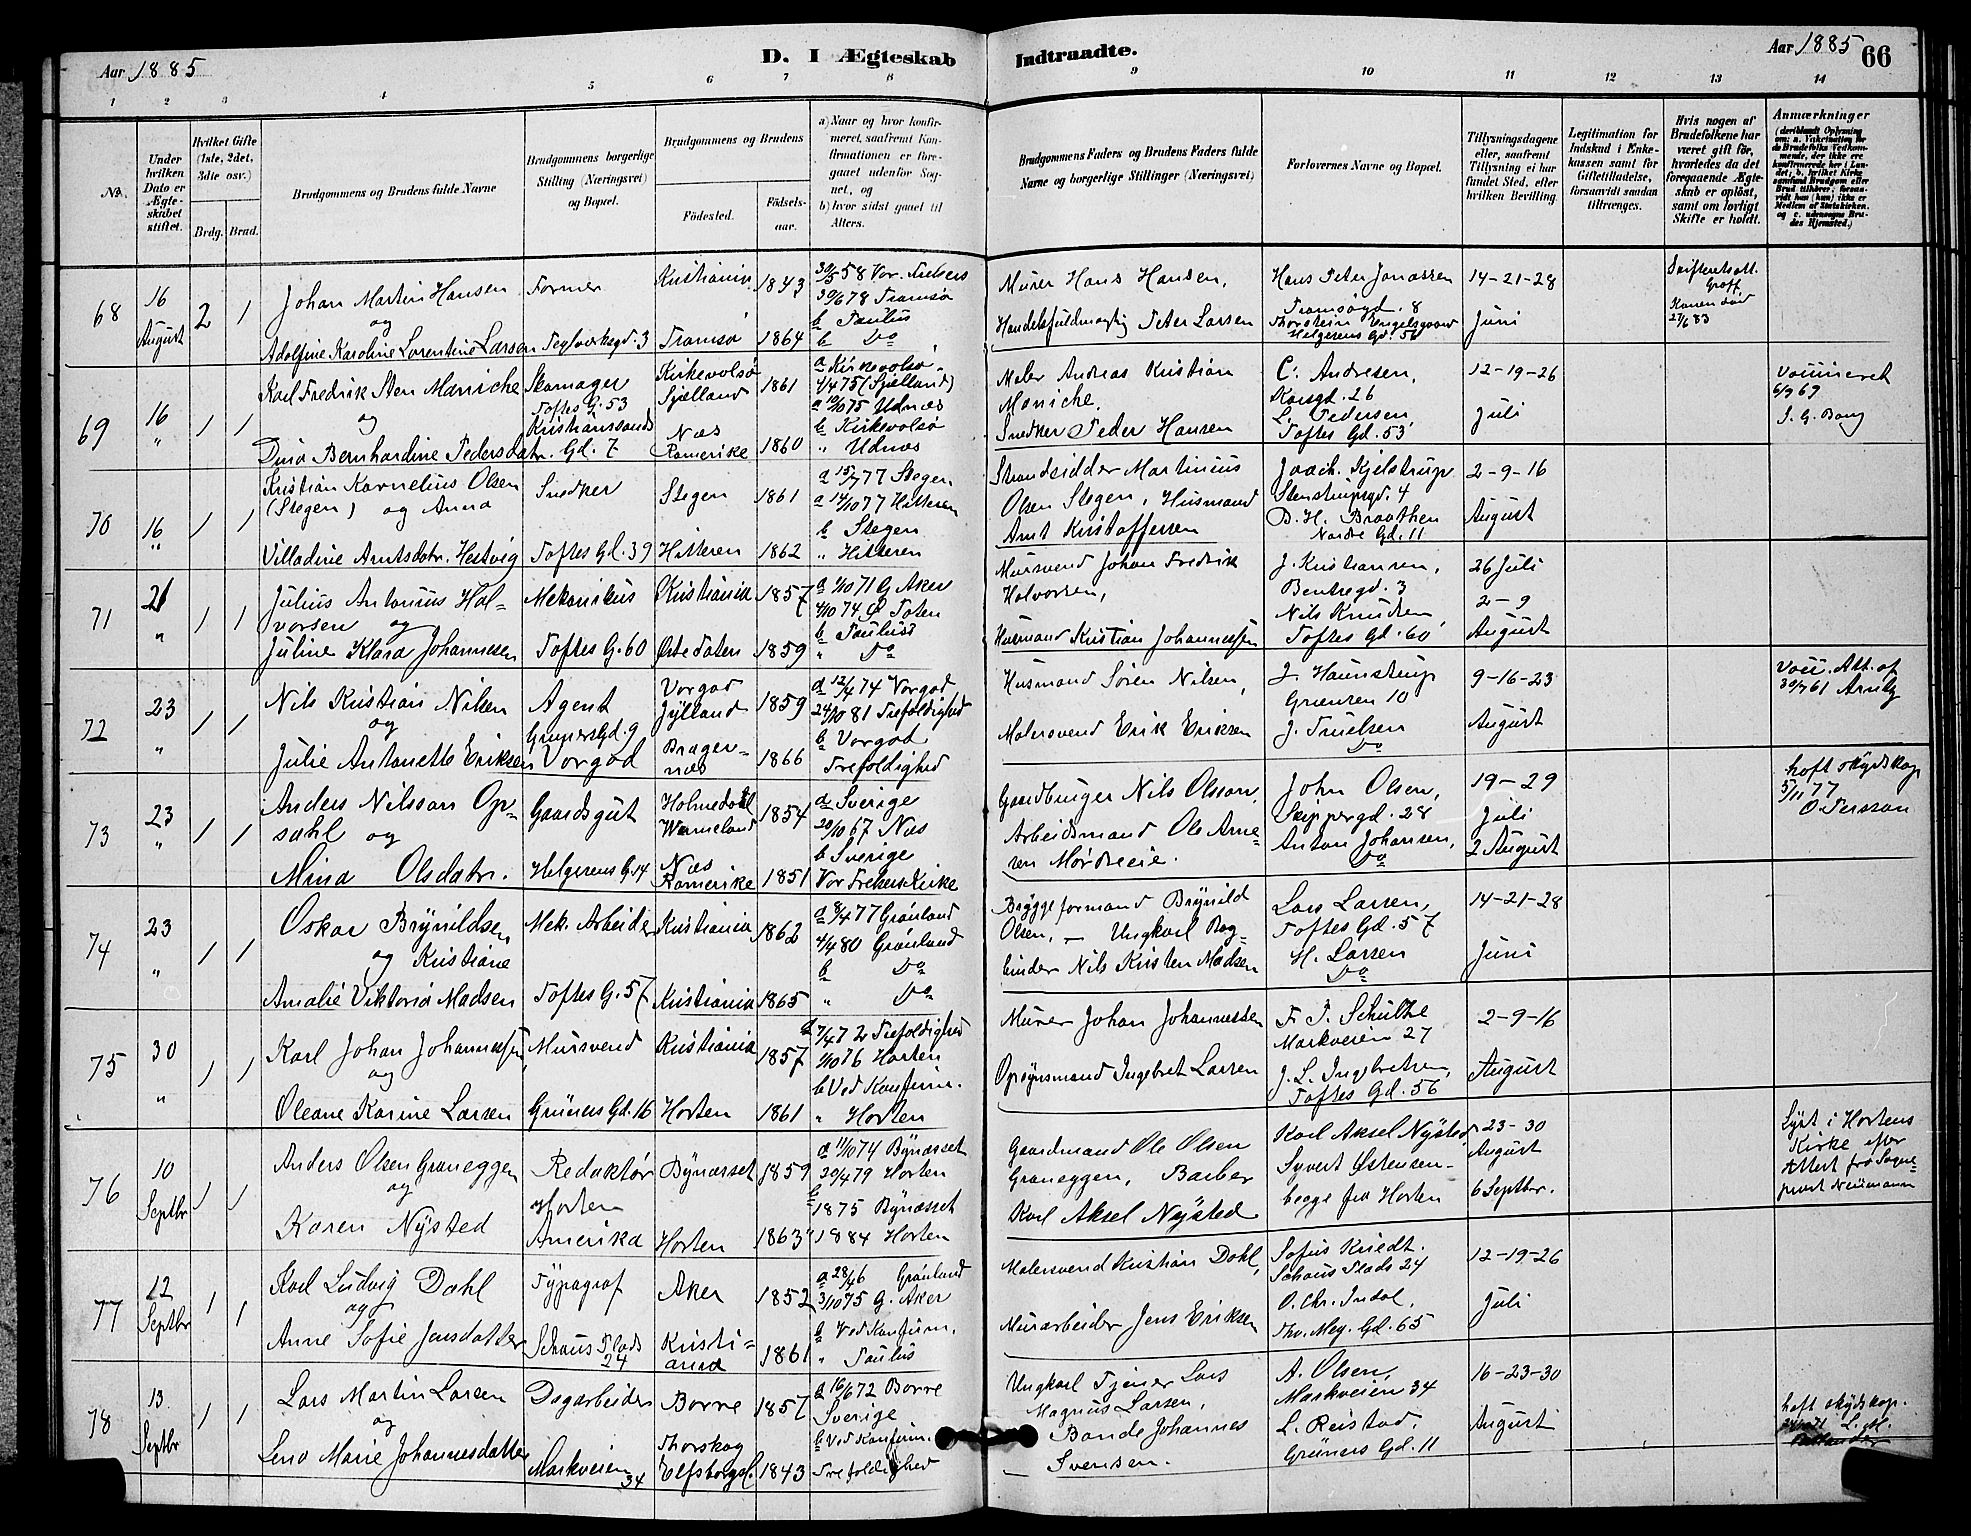 Aar 1885
D. I Ægteskab
Indtraadte.
Aar 1885
66
1 2 3 4 5 6 7 8 9 10 11 12 13 14
No.
Under hvilken Dato er Ægteskabet stiftet.
Hvilket Gifte (1ste, 2det, 3die osv.)
Brdg. Brud.
Brudgommens og Brudens fulde Navne
Brudgommens borgerlige Stilling (Næringsvei) og Bopæl.
Brudgommens og Brudens
Fødested.
Fødselsaar.
a) Naar og hvor konfirmeret, saafremt Konfirmationen er foregaaet udenfor Sognet, og
b) hvor sidst gaaet til Alters.
Brudgommens Faders og Brudens Faders fulde Navne og borgerlige Stillinger (Næringsvei)
Forlovernes Navne og Bopæl.
Tillysningsdagene eller, saafremt Tillysning ei har fundet Sted, efter hvilken Bevilling.
Legitimation for Indskud i Enkekassen samt for Giftetilladelse, forsaavidt saadan tiltrænges.
Hvis nogen af Brudefolkene har været gift før, hvorledes da det foregaaende Ægteskab er opløst, samt om lovligt Skifte er holdt.
Anmærkninger
68
16 August
2 1
Johan Martin Hansen
og
Adolfine Karoline Lorentine Larsen
Former
Teglverksgd. 3
Kristiania 1843
Tromsø 1864
30/5 58 Vor Frelsers
30/6 78 Tromsø
b Paulus
b Do
Murer Hans Hansen,
Handelsfuldmægtig Peter Larsen
Hans Peter Jonassen
Tromsøgd. 8
Thorstein Engelsgaard
Helgesens Gd. 56
14-21-28
Juni
Skifteratt.
Konen død
27/6 83
69
16 "
1 1
Karl Fredrik Sten Møniche
og
Dina Bernhardine Pedersdatr.
Skomager
Toftes G. 53
Kristianssands
Gd. 7
Sjælland 1861
Næs
Romerike 1860
4/4 75 (Sjælland)
a 10/10 75 Udnæs
" Udnæs
Maler Andreas Kristian
Møniche.
Snedker Peder Hansen
C. Andresen,
Korsgd. 26
L. Pedersen,
Toftes Gd. 53
12-19-26
Juli
6/9 69
S. G. Bang
70
16 "
1 1
Kristian Kornelius Olsen
(Stegen) og Anna
Villadine Arntsdatr. Hestvig
Snedker
Toftes Gd. 39
Stegen 1861
Hitteren 1862
a 15/7 77 Stegen
a 14/10 77 Hitteren
b Stegen
" Hitteren
Strandsidder Martinius
Olsen Stegen, Husmand
Arnt Kristoffersen
Joach. Kjelstrup
Stenstrupsgd. 4
B. H. Braathen
Nordre Gd. 11
2-9-16
August
71
21 "
1 1
Julius Antonius Hal-
vorsen og
Juline Klara Johannesen
Mekanikus
Toftes G. 60
Kristiania 1857
Østre Toten 1859
a 1/10 71 G. Aker
4/10 74 Ø Toten
b Paulus
" Do
Mursvend Johan Fredrik
Halvorsen,
Husmand Kristian Johannessen
J. Kristiansen,
Bentsegd. 3
Nils Knudsen
Toftes Gd. 60
26 Juli
2-9
August
72
23 "
1 1
Nils Kristian Nilsen
og
Julie Antonette Eriksen
Agent
Vorgod
Vorgod
Jylland 1859
Brager-
næs 1866
a 12/4 74 Vorgod
24/10 81 Trefoldighed
b Vorgod
Trefoldighed
Husmand Søren Nilsen,
Malersvend Erik Eriksen
J. Haunstrup
Grænsen 10
J. Truelsen
Do
9-16-23
August
Vacc. Att. af
30/9 61
73
23 "
1 1
Anders Nilsson Op-
sahl og
Mina Olsdatr.
Gaardsgut
Helgesens G. 14
Holmedahl
Wærmeland 1854
Næs
Romerike 1851
a Sverige
20/10 67 Næs
b Sverige
Vor Frelsers Kirke
Gaardbruger Nils Olsson,
Arbeidsmand Ole Arne-
sen Mørdreeie.
John Olsen,
Skippergd. 28
Anton Johansen,
Do
19-29
Juli
2 August
5/11 77
O. Persson
74
23 "
1 1
Oskar Brynildsen
og Kristiane
Amalie Viktoria Madsen
Mek. Arbeider
Toftes G. 57
Kristiania 1862
Kristiania 1865
a 8/4 77 Grønland
4/4 80 Grønland
b Do
" Do
Bryggeformand Brynild
Olsen, — Ungkarl Bog-
binder Nils Kristen Madsen
Lars Larsen,
Toftes Gd. 57
H. Larsen
Do
14-21-28
Juni
75
30 "
1 1
Karl Johan Johannessen
og
Oleane Karine Larsen
Mursvend
Grüners Gd. 16
Kristiania 1857
Horten 1861
a 7/4 72 Trefoldighed
1/10 76 Horten
b Ved Konfirm.
" Horten
Murer Johan Johannessen
Opsynsmand Ingebret Larsen
F. P. Schultze
Markveien 27
J. L. Ingebretsen,
Toftes Gd. 56
2-9-16
August
76
10 Septbr
1 1
Anders Olsen Graneggen
og
Karen Nysted
Redaktør
Horten
Amerika
Bynæsset 1859
Horten 1863
a 11/10 74 Bynæsset
20/4 79 Horten
b
1875 Bynæsset
" 1884 Horten
Gaardmand Ole Olsen
Graneggen, Barber
Karl Aksel Nysted
Karl Aksel Nysted
Syvert Østensen-
begge fra Horten
23-30
August
6 Septbr.
Lyst i Hortens
Kirke efter
Attest fra Sogne-
prest Neumann
77
12 Septbr
1 1
Karl Ludvig Dahl
og
Anne Sofie Jensdatter
Typograf
Schous Plads
24
Aker 1852
Kristi-
ania 1861
Grønland
3/10 75 G. Aker
b Ved Konfirm.
" Paulus
Malersvend Kristian Dahl,
Murarbeider Jens Eriksen
Sofus Kriedt.
Schous Plads 24
O. Chr. Indal,
Thv. Mey. Gd. 65
12-19-26
Juli
78
13. Septbr
1 1
Lars Martin Larsen
og
Lena Marie Johannesdatter
Dagarbeider
Markveien
34
Borre 1857
Thorskog
Elfsborgsl. 1843
a 16/6 72 Borre
Sverige
b Ved Konfirm.
Trefoldighed
Ungkarl Tjener Lars
Magnus Larsen,
Bonde Johannes
Svensen.
A. Olsen,
Markveien 34
L. Reistad,
Grüners Gd. 11
16-23-30
August